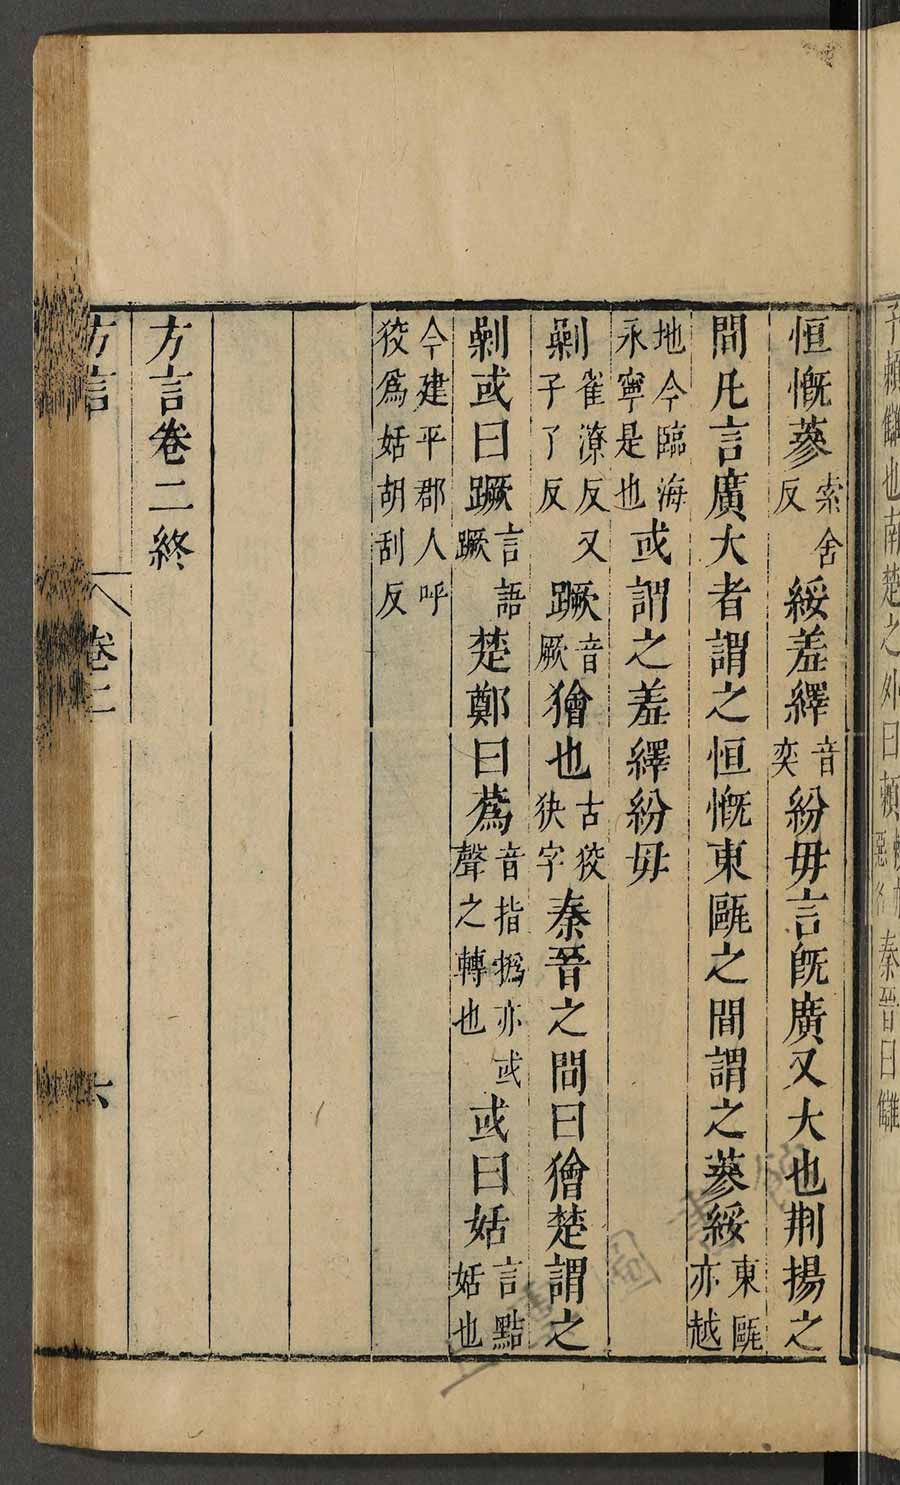 子賴讎也南楚之外曰賴秦晉曰讎
恒慨蔘索舍反綏羞繹音奕紛毋言旣廣又大也荆揚之
間凡言廣大者謂之恒慨東甌之間謂之蔘綏東甌亦越
地今臨海永寧是也或謂之羞繹紛毋
剿雀潦反又子了反蹶音厥獪也古狡狭字秦晉之間曰獪楚謂之
剿或曰蹶言語蹶楚鄭曰蔿音指撝亦或聲之轉也或曰姡言黠姡也
今建平郡人呼狡爲姡胡刮反
方言卷二終
方言 卷二 六